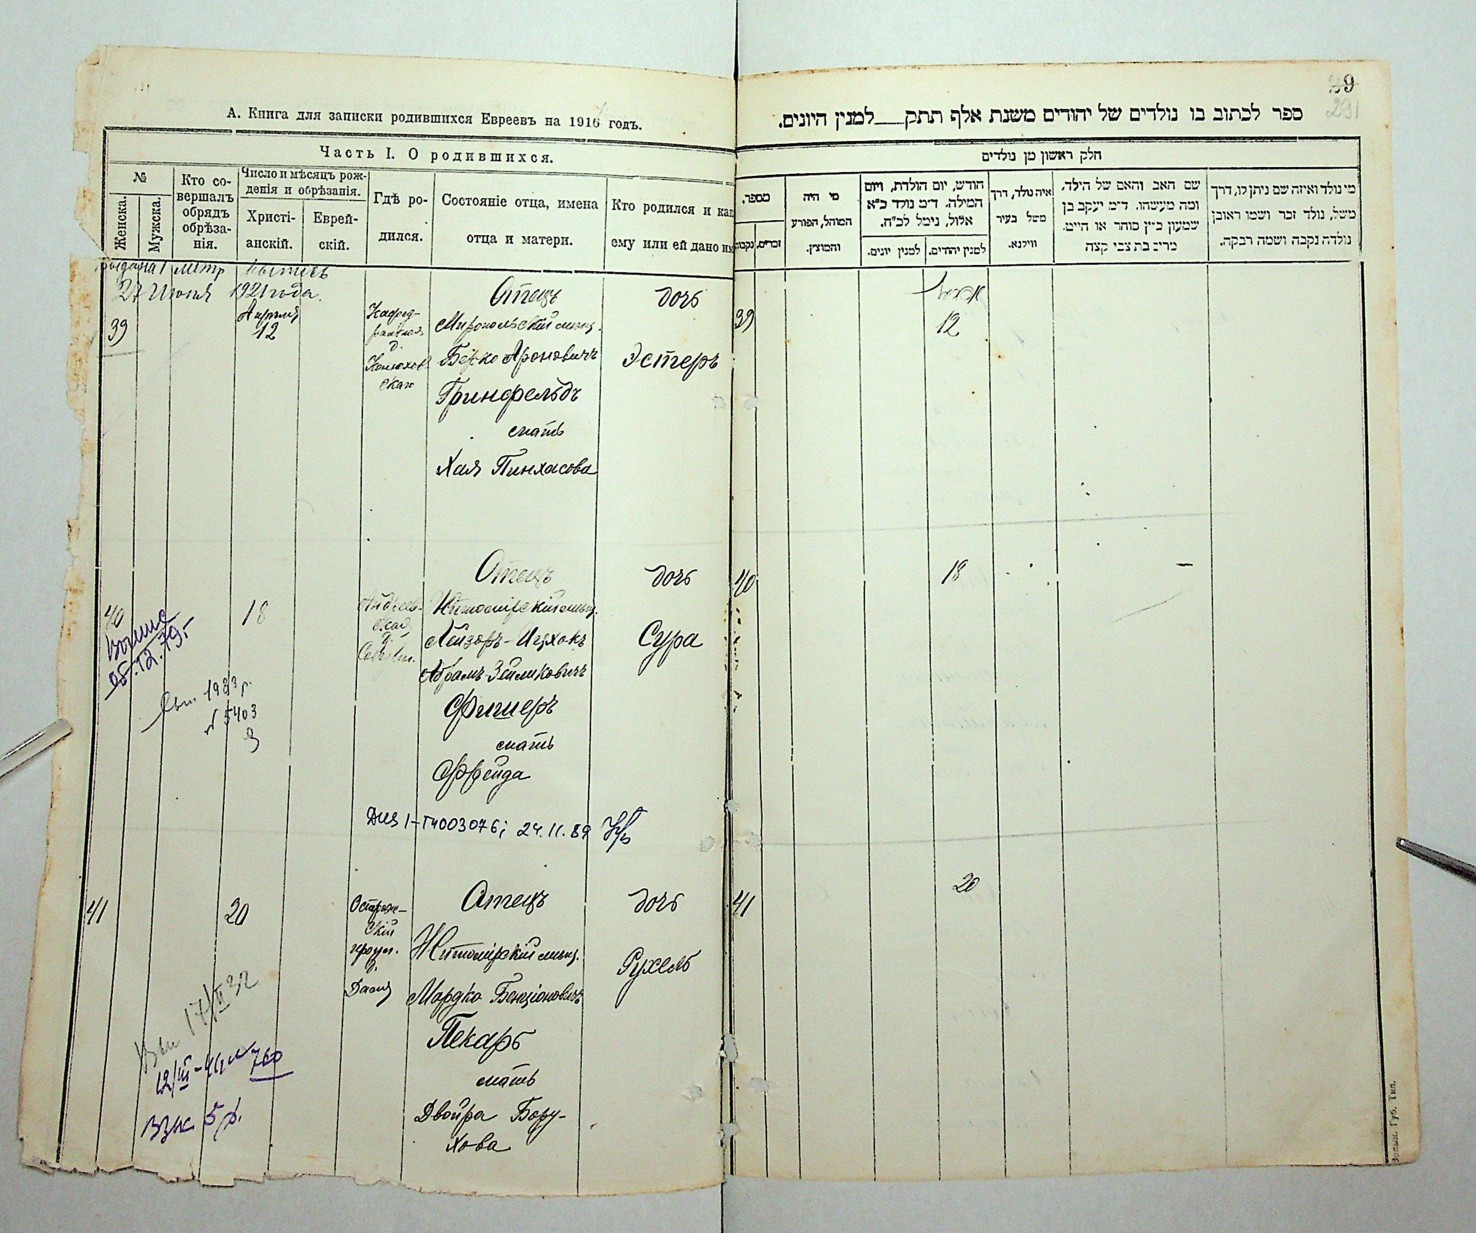 А. Книга для записки родившихся Евреевъ на 1916 годъ.
Часть I. О родившихся.
№
Женска.
Мужска.
Кто со-
вершалъ
обрядъ
обрѣза-
нія.
Число и мѣсяцъ рож-
денія и обрѣзанія.
Христі-
анскій.
Еврей-
скій.
Гдѣ ро-
дился.
Состояніе отца, имена
отца и матери.
Кто родился и как
ему или ей дано им
27 Июня 1921 года.
39
Апрѣля
12
Отецъ
Миропольскій мѣщ.
Берко Ароновичъ
Гринфельдъ
мать
Хая Пинхасова
дочь
Эстеръ
40
18
Отецъ
Житомірскій мѣщ.
Лейзоръ-Ицхокъ
Абрамъ-Зейликовичъ
Фишеръ
мать
Фрейда
дочь
Сура
25.IX.79г
№ 5403
24.11.89
41
20
Острож-
скій
д.
Отецъ
Житомірскій мѣщ.
Мордко Бенціоновичъ
Пекарь
мать
Двойра Бору-
хова
дочь
Рухель
17/II 32
12/III-41 № 760
5 р.
29
291
ספר לכתוב בו נולדים של יהודים משנת אלף תתק__למנין היונים.
חלק ראשון מן נולדים
מספר.
נקבות.
זכרים.
מי היה
המוהל, הפורע
והמוצץ.
חודש, יום הולדת, ויום
המילה. ד״מ נולד כ״א
אלול, נימל לכ״ה.
למנין יונים.
למנין יהודים.
איה נולד, דרך
משל בעיר
ווילנא.
שם האב והאם של הילד.
ומה מעשהו. ד״מ יעקב בן
שמעון כ״ץ סוחר או חייט.
מרים בת צבי קצה
מי נולד ואיזה שם ניתן לו, דרך
משל, נולד זכר ושמו ראובן
נולדה נקבה ושמה רבקה.
39
12
40
18
41
20
Губ. Тип.